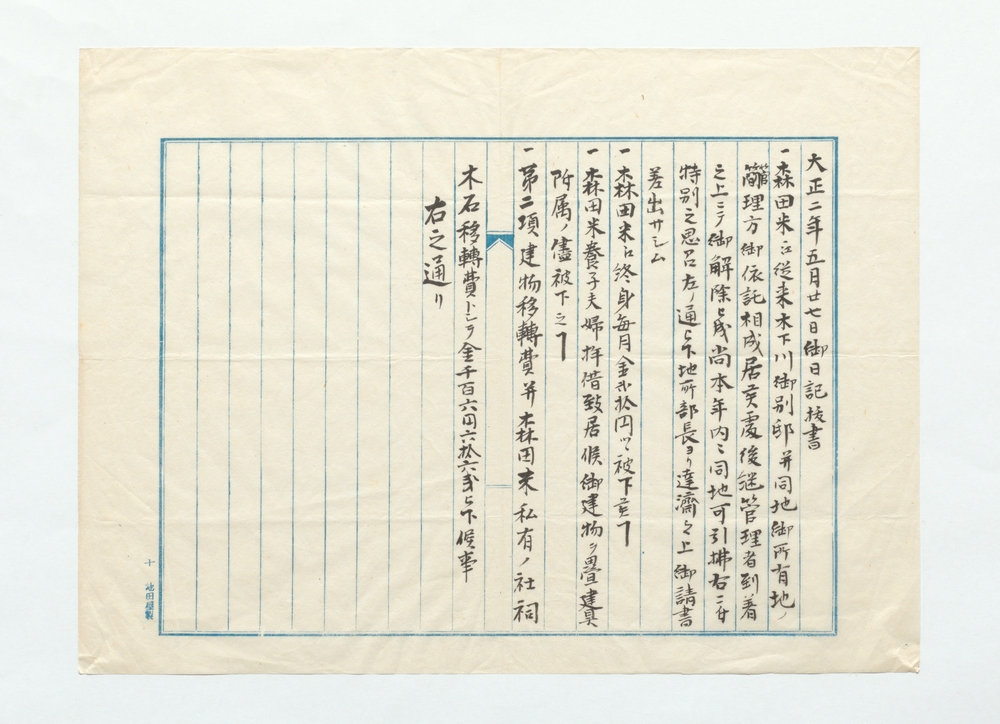 大正二年五月廿七日御日記抜書
一森田米ニ従来木下川御別邸并同地御所有地ノ
管理方御依託相成居候處後継管理者到着
之上ニテ御解除ト成尚本年内ニ同地可引拂右ニ付
特別之思召左ノ通ト下地所部長ヨリ達濟之上御請書
差出サシム
一森田米ニ終身毎月金弐拾円ツヽ被下候ヿ
一森田米養子夫婦拝借致居候御建物ヲ畳建具
附属ノ儘被下之ヿ
一第二項建物移轉費并森田米私有ノ社祠
木石移轉費トシテ金千百六円六拾六銭ト下候事
右之通リ
十 池田屋製